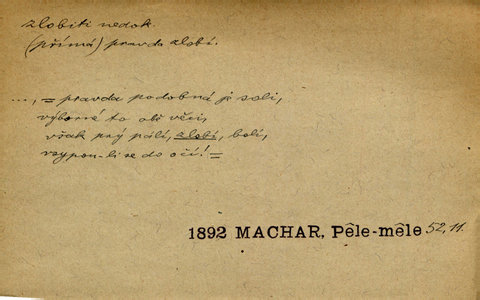 zlobiti nedok.
(přímá) pravda zlobí.
..., = pravda podobná je soli,
výborné to obě věci,
však prý pálí, zlobí, bolí,
vsypou-li se do očí! =
1892 MACHAR, Pêle-mêle 52, 11.